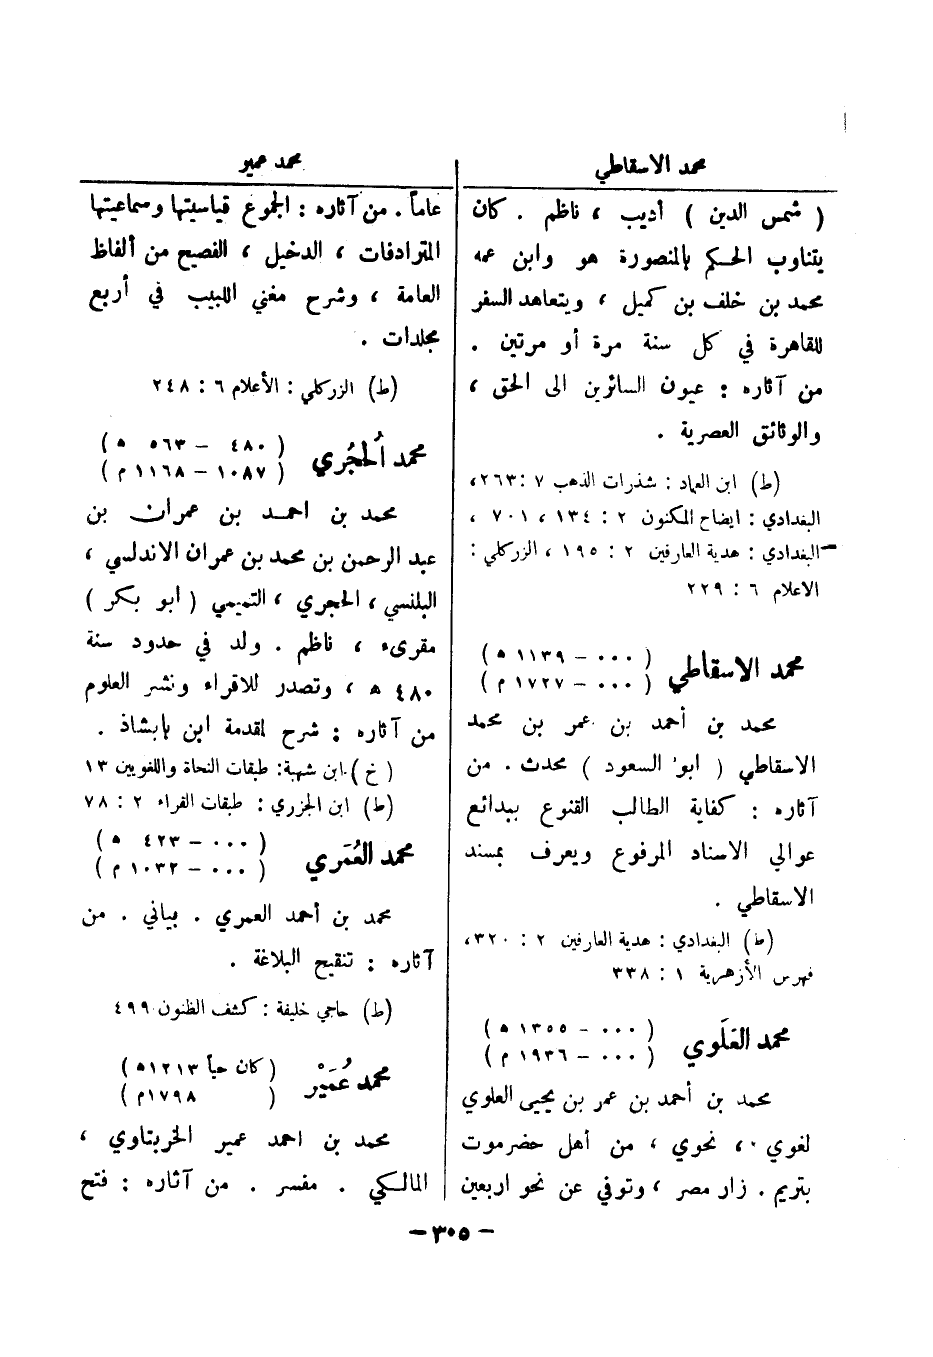 محمد الاسقاطي
( شمس الدين ) أديب ، ناظم . كان
يتناوب الحكم بالمنصورة هو وابن عمه
محمد بن خلف بن كميل ، ويتعاهد السفر
للقاهرة في كل سنة مرة أو مرتين .
من آثاره : عيون السائرين الى الحق ،
والوثائق العصرية .
(ط) ابن العماد : شذرات الذهب ٧ :٢٦٣،
البغدادي : ايضاح المكنون ٢ : ١٣٤ ، ٧٠١ ،
البغدادي : هدية العارفين ٢ : ١٩٥ ، الزركلي :
الاعلام ٦ : ٢٢٩
محمد الاسقاطي ( ٠٠٠ – ١١٣٩ ه )
( ٠٠٠ – ١٧٢٧ م )
محمد بن أحمد بن عمر بن محمد
الاسقاطي ( ابو السعود ) محدث . من
آثاره : كفاية الطالب القنوع ببدائع
عوالي الاسناد المرفوع ويعرف بمسند
الاسقاطي .
(ط) البغدادي : هدية العارفين ٢ : ٣٢٠،
فهرس الأزهرية ١ : ٣٣٨
محمد العَلَوي ( ٠٠٠ – ١٣٥٥ ه )
( ٠٠٠ – ١٩٣٦ م )
محمد بن أحمد بن عمر بن يحيى العلوي
لغوي ، نحوي ، من أهل حضرموت
بتريم . زار مصر ، وتوفي عن نحو اربعين
محمد عمير
عاماً . من آثاره : الجموع قياسيتها وسماعيتها
المترادفات ، الدخيل ، الفصيح من ألفاظ
العامة ، وشرح مغني اللبيب في أربع
مجلدات .
(ط) الزركلي : الأعلام ٦ : ٢٤٨
محمد الحُجُري ( ٤٨٠ – ٥٦٣ ه )
( ١٠٨٧ – ١١٦٨ م )
محمد بن احمد بن عمران بن
عبد الرحمن بن محمد بن عمران الاندلسي ،
البلنسي ، الحجري ، التميمي ( ابو بكر )
مقرىء ، ناظم . ولد في حدود سنة
٤٨٠ ه ، وتصدر للاقراء ونشر العلوم
من آثاره : شرح لمقدمة ابن بابشاذ .
(خ) ابن شهبة: طبقات النحاة واللغويين ١٣
(ط) ابن الجزري : طبقات القراء ٢ : ٧٨
محمد العُمَري ( ٠٠٠ – ٤٢٣ ه )
( ٠٠٠ – ١٠٣٢ م )
محمد بن أحمد العمري . بياني . من
آثاره : تنقيح البلاغة .
(ط) حاجي خليفة : كشف الظنون ٤٩٩
محمد عُمَيْر ( كان حياً ١٢١٣ ه )
( ١٧٩٨م )
محمد بن احمد عمير الخربتاوي ،
المالكي . مفسر . من آثاره : فتح
– ٣٠٥ –